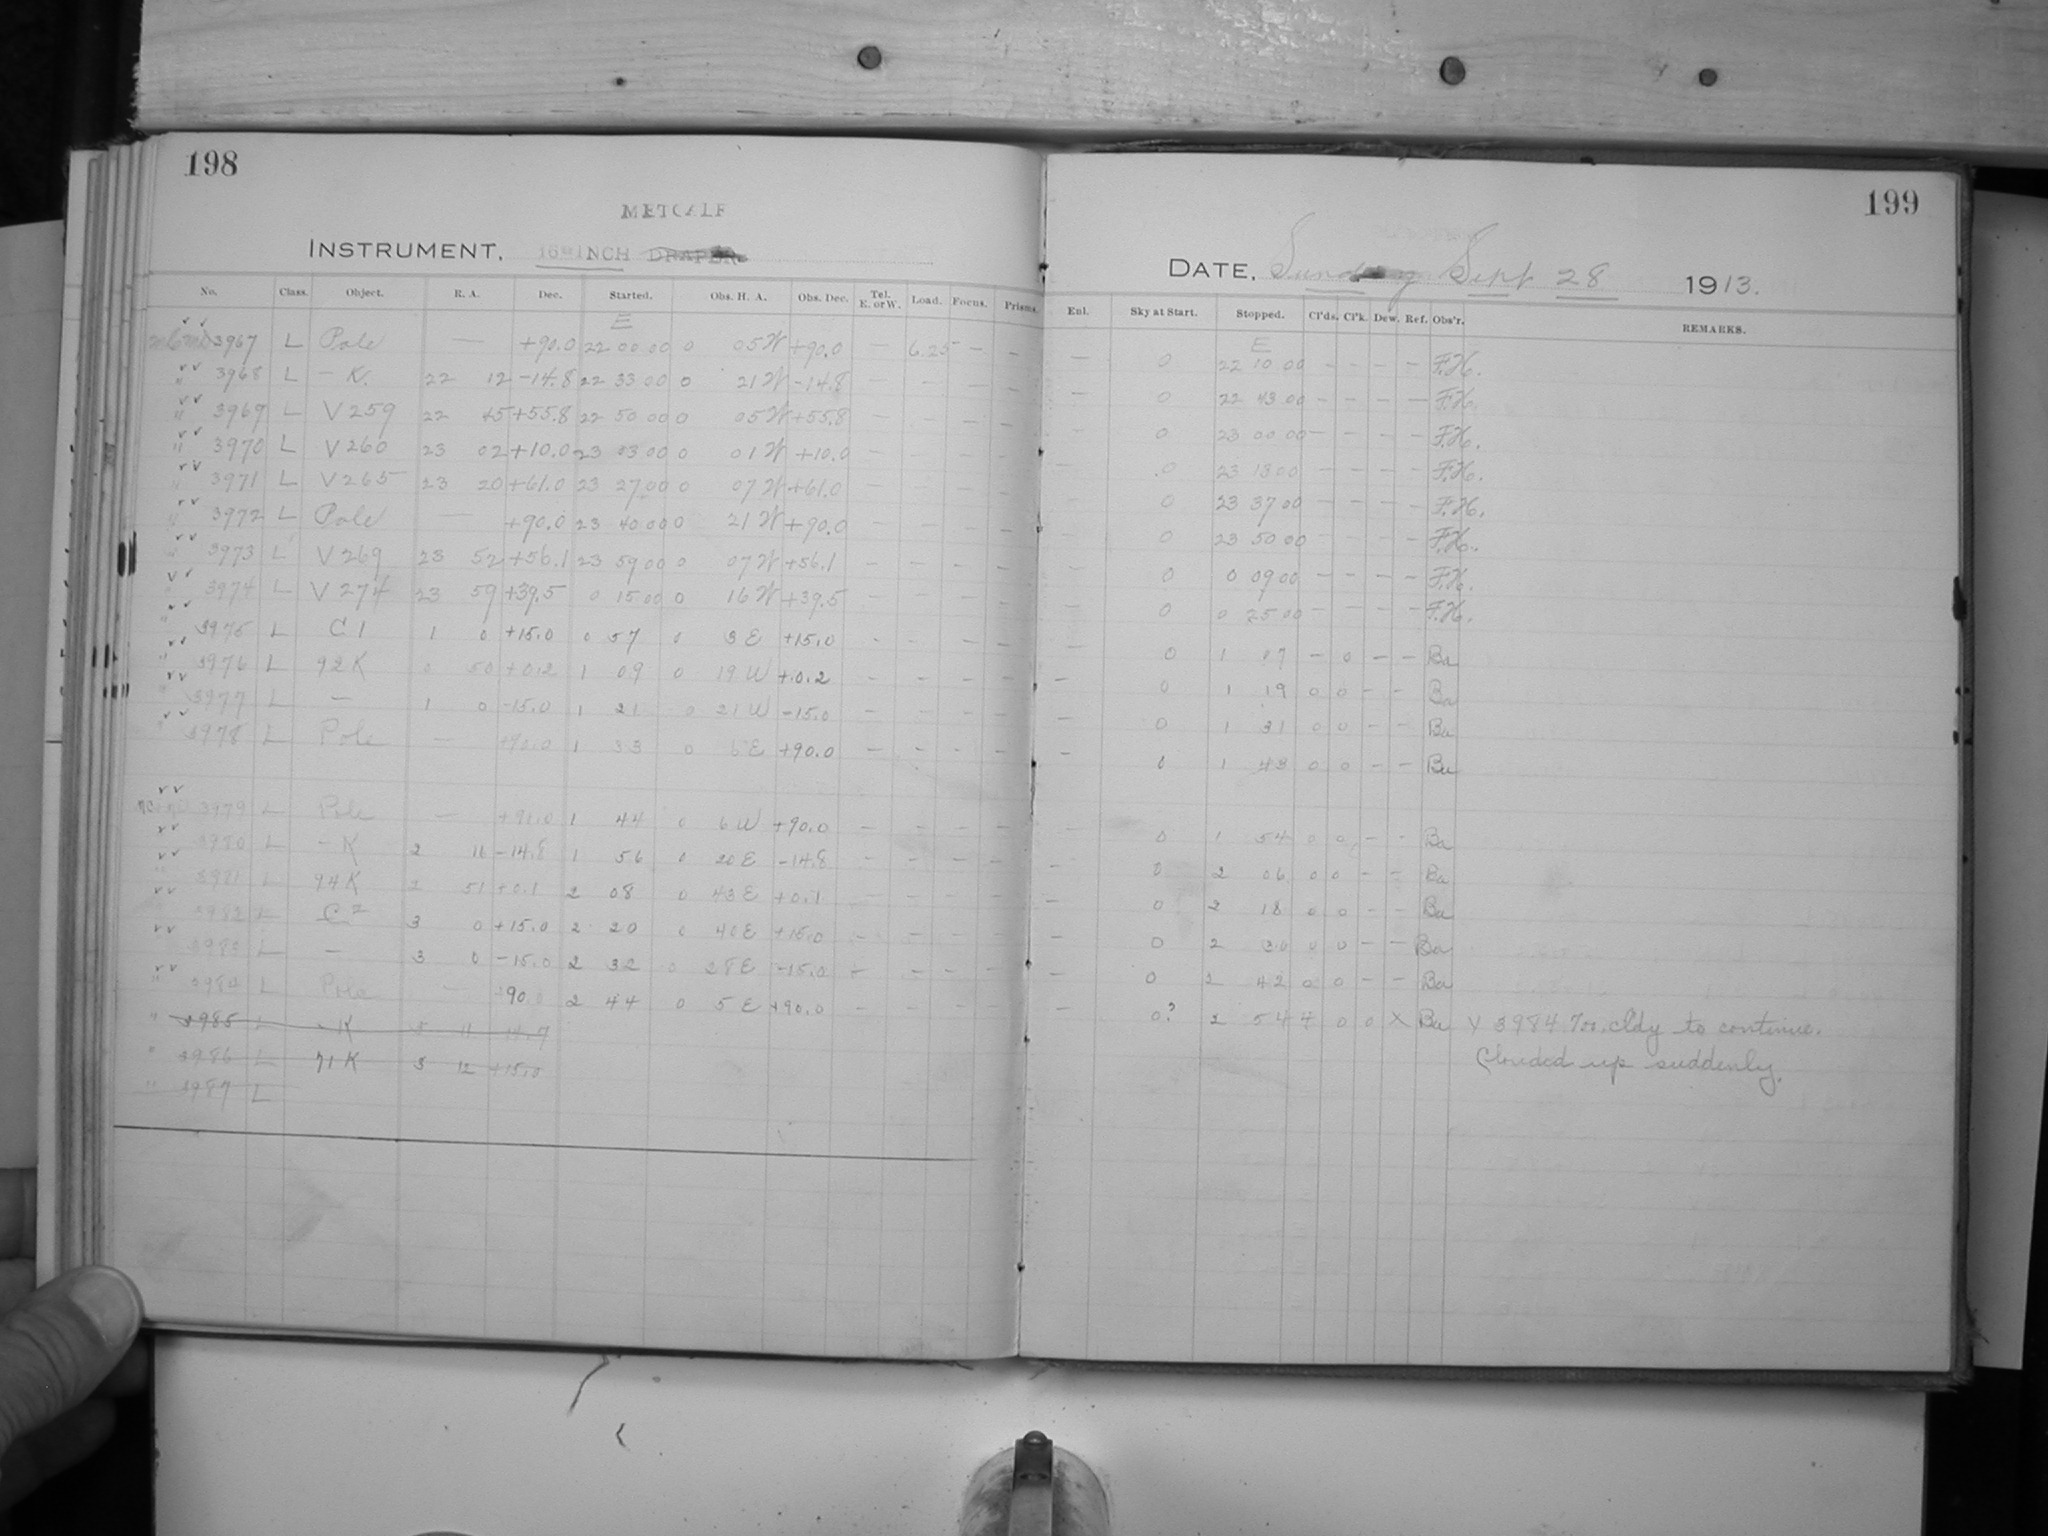 198
METCALF
INSTRUMENT, 16-INCH DRAPER
No. Class. Object. R. A. Dec. Started. Obs. H. A. Obs. Dec. Tel. E. or W. Load. Focus. Prisms.
E
3967 L Pole — +90.0 22 00 00 0 05 W +90.0 — 6.25 — —
" 3968 L - K. 22 12 -14.8 22 33 00 0 21 W -14.8 — — — —
" 3969 L V 259 22 45 +55.8 22 50 00 0 05 W +55.8 — — — —
" 3970 L V 260 23 02 +10.0 23 03 00 0 01 W +10.0 — — — —
" 3971 L V 265 23 20 +61.0 23 27 00 0 07 W +61.0 — — — —
" 3972 L Pole — +90.0 23 40 00 0 21 W +90.0 — — — —
" 3973 L V 269 23 52 +56.1 23 59 00 0 07 W +56.1 — — — —
" 3974 L V 274 23 59 +39.5 0 15 00 0 16 W +39.5 — — — —
" 3975 L C 1 1 0 +15.0 0 57 0 3 E +15.0 - - - -
" 3976 L 92 K 0 50 +0.2 1 09 0 19 W +0.2 - - - -
" 3977 L — 1 0 -15.0 1 21 0 21 W -15.0 - - - -
" 3978 L Pole — +90.0 1 33 0 5 E +90.0 - - - -
3979 L Pole — +90.0 1 44 0 6 W +90.0 - - - -
3980 L - K 2 16 -14.8 1 56 0 20 E -14.8 - - - -
" 3981 L 94 K 2 51 +0.1 2 08 0 43 E +0.1 - - - -
3982 L C 2 3 0 +15.0 2 20 0 40 E +15.0 - - - -
3983 L — 3 0 -15.0 2 32 0 28 E -15.0 - - - -
" 3984 L Pole — +90.0 2 44 0 5 E +90.0 - - - -
" 3985 L - K 5 11 -14.7
" 3986 L 71 K 5 12 +15.0
" 3987 L
199
DATE, Sunday Sept 28 1913.
Enl. Sky at Start. Stopped. Cl'ds. Cl'k. Dew. Ref. Obs'r. REMARKS.
E
— 0 22 10 00 - - - - F.H.
— 0 22 43 00 - - - - F.H.
- 0 23 00 00 - - - - F.H.
— 0 23 13 00 - - - - F.H.
— 0 23 37 00 - - - - F.H.
— 0 23 50 00 - - - - F.H.
— 0 0 09 00 - - - - F.H.
— 0 0 25 00 - - - - F.H.
— 0 1 07 - 0 - - Ba
— 0 1 19 0 0 - - Ba
— 0 1 31 0 0 - - Ba
— 0 1 43 0 0 - - Ba
— 0 1 54 0 0 - - Ba
— 0 2 06 0 0 - - Ba
— 0 2 18 0 0 - - Ba
— 0 2 30 0 0 - - Ba
— 0 2 42 0 0 - - Ba
— 0? 2 54 7 0 0 X Ba 3984 Too cldy to continue.
Clouded up suddenly.